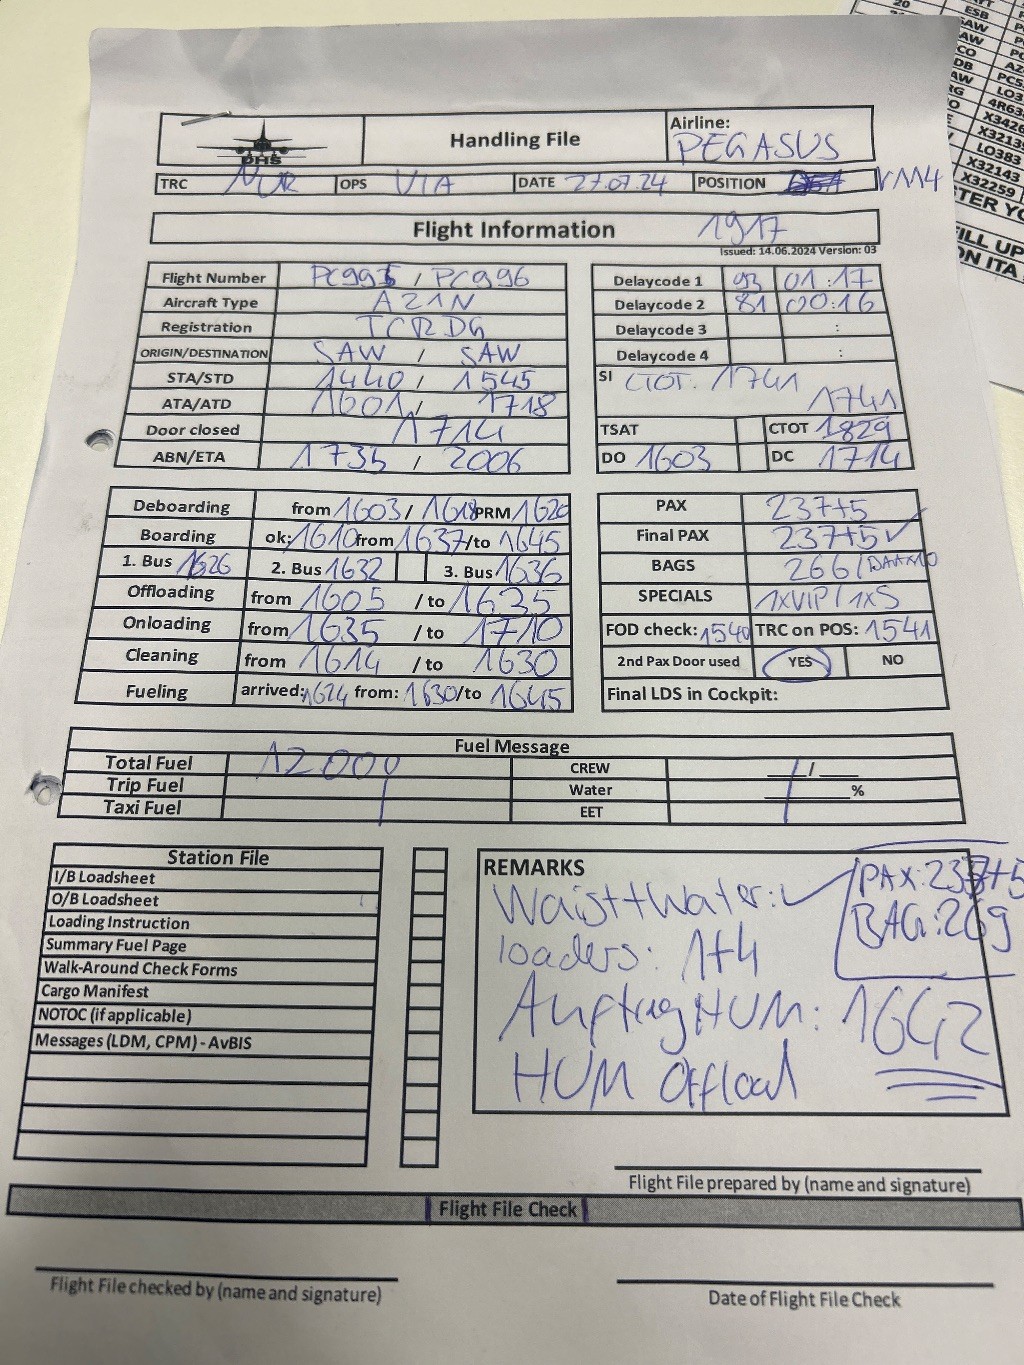 DHS
Handling File
Airline:
PEGASUS
TRC NUR OPS VIA DATE 27.07.24 POSITION V114
Flight Information 1917
Issued: 14.06.2024 Version: 03
Flight Number PC995 / PC996
Aircraft Type A21N
Registration TCRDG
ORIGIN/DESTINATION SAW / SAW
STA/STD 1440 / 1545
ATA/ATD 1601 / 1718
Door closed 1714
ABN/ETA 1735 / 2006
Delaycode 1 93 01:17
Delaycode 2 81 00:16
Delaycode 3 :
Delaycode 4 :
SI CTOT. 1741
1741
TSAT CTOT 1829
DO 1603 DC 1714
Deboarding from 1603 / 1618 PRM 1620
Boarding ok: 1610 from 1637 /to 1645
1. Bus 1626 2. Bus 1632 3. Bus 1636
Offloading from 1605 / to 1635
Onloading from 1635 / to 1710
Cleaning from 1614 / to 1630
Fueling arrived: 1624 from: 1630 /to 1645
PAX 237+5
Final PAX 237+5 ✓
BAGS 266 /
SPECIALS 1xVIP / 1xS
FOD check: 1540 TRC on POS: 1541
2nd Pax Door used YES NO
Final LDS in Cockpit:
Fuel Message
Total Fuel 12000 CREW ___/___
Trip Fuel Water ______%
Taxi Fuel EET
Station File
I/B Loadsheet
O/B Loadsheet
Loading Instruction
Summary Fuel Page
Walk-Around Check Forms
Cargo Manifest
NOTOC (if applicable)
Messages (LDM, CPM) - AvBIS
REMARKS
Waist+Water: ✓
loaders: 1+4
Auftrag HUM: 1642
HUM Offload
PAX: 237+5
BAG: 269
Flight File prepared by (name and signature)
Flight File Check
Flight File checked by (name and signature)
Date of Flight File Check
20
ESB
SAW
LO383
X32143
X32259